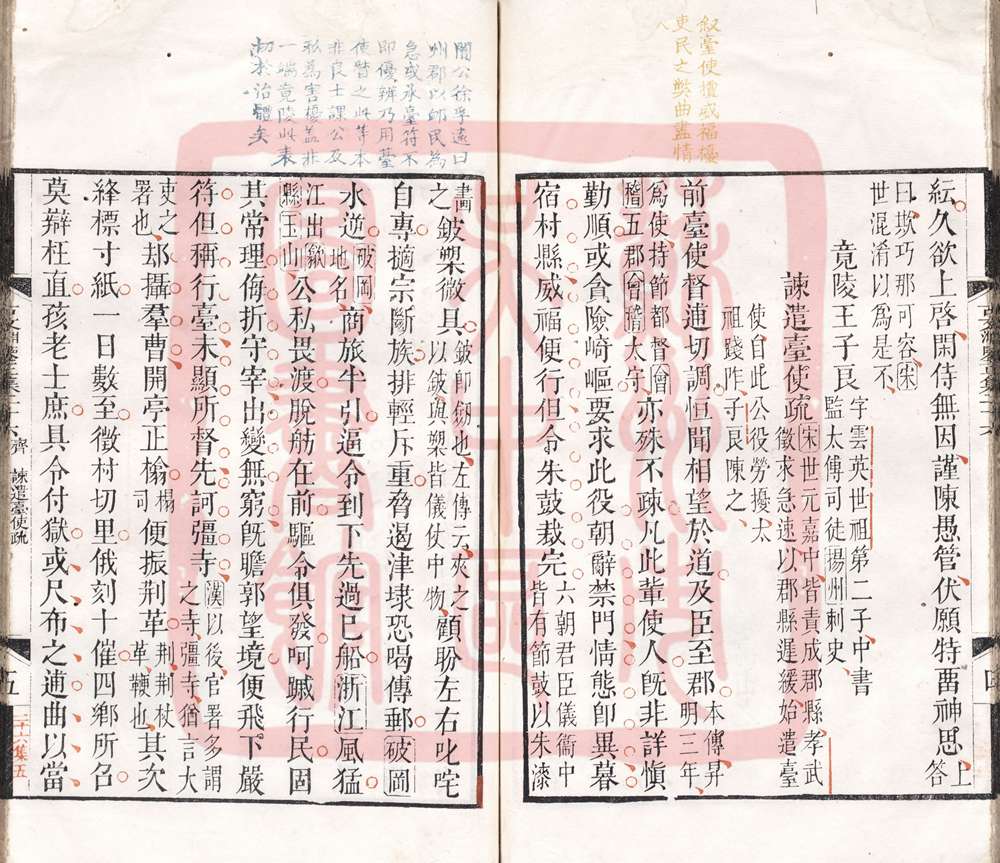 叙臺使擅威福擾
吏民之獘曲盡情
紜久欲上啓閑侍無因謹陳愚管伏願特畱神思上答
曰欺巧那可容宋
世混淆以爲是不
竟陵王子良字雲英世祖第二子中書
監太傅司徒揚州刺史
諫遣臺使疏宋世元嘉中皆責成郡縣孝武
徵求急速以郡縣遲緩始遣臺
使自此公役勞擾太
祖踐阼子良陳之
前臺使督逋切調恒聞相望於道及臣至郡本傳昇
明三年
爲使持節都督會
稽五郡會稽太守亦殊不疎凡此輩使人旣非詳愼
勤順或貪險崎嶇要求此役朝辭禁門情態卽異暮
宿村縣威福便行但令朱鼓裁完六朝君臣儀衞中
皆有節鼓以朱漆
四
闇公徐孚遠曰
州郡以師民為
急或承臺符不
即優辨乃用臺
使督之此等本
非良士課公及
私為害擾蓋非
一端竟陵此表
切於治體矣
畫之鈹槊微具鈹卽劒也左傳云夾之
以鈹與槊皆儀仗中物顧盼左右叱咤
自專擿宗斷族排輕斥重脅遏津埭恐喝傳郵破岡
水逆破岡
地名商旅半引逼令到下先過已船浙江風猛
江出歙
縣玉山公私畏渡脫舫在前驅令俱發呵蹴行民固
其常理侮折守宰出變無窮旣瞻郭望境便飛下嚴
符但稱行臺未顯所督先訶彊寺漢以後官署多謂
之寺彊寺猶言大
吏之
署也却攝羣曹開亭正榆榻
司便振荆革荆荆杖
革鞭也其次
絳標寸紙一日數至徵村切里俄刻十催四鄉所召
莫辯枉直孩老士庶具令付獄或尺布之逋曲以當
齊 諫遣臺使疏
五
二十六集五